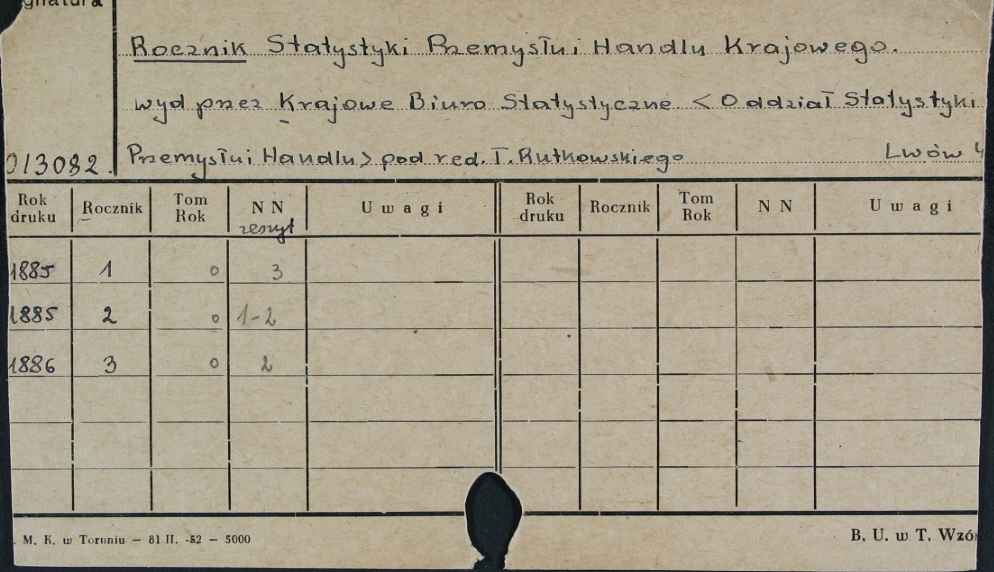 gnatura
Rocznik Statystyki Przemysłu i Handlu Krajowego.
wyd przez Krajowe Biuro Statystyczne < Oddział Statystyki
013082. Przemysłu i Handlu > pod red. T. Rutkowskiego Lwów
Rok druku Rocznik Tom Rok NN zeszyt Uwagi Rok druku Rocznik Tom Rok NN Uwagi
1885 1 0 3
1885 2 0 1-2
1886 3 0 2
M. K. w Toruniu — 81 II. -52 — 5000 B. U. w T. Wzó